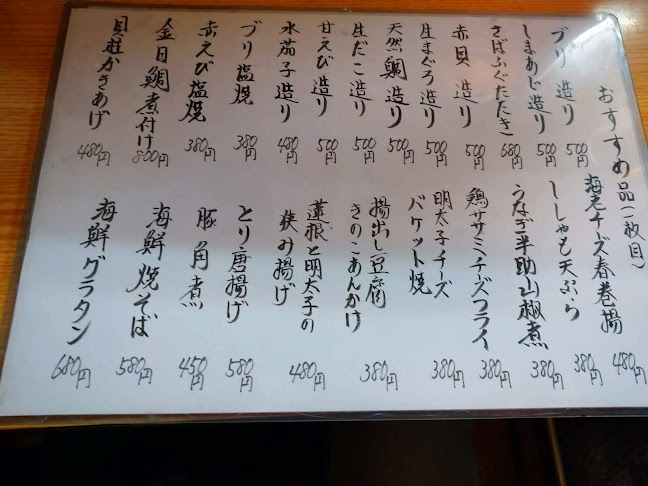 おすすめ品(一枚目)
ブリ造り 500円
しまあじ造り 500円
さばふぐたたき 680円
赤貝造り 500円
生まぐろ造り 500円
天然鯛造り 500円
生だこ造り 500円
甘えび造り 500円
水茄子造り 480円
ブリ塩焼 380円
赤えび塩焼 380円
金目鯛煮付け 800円
貝柱かきあげ 480円
海老チーズ春巻揚 480円
ししゃも天ぷら 380円
うなぎ半助山椒煮 380円
鶏ササミチーズフライ 380円
明太子チーズ
バケット焼 380円
揚出し豆腐
きのこあんかけ 380円
蓮根と明太子の
挟み揚げ 480円
とり唐揚げ 580円
豚角煮 450円
海鮮焼そば 580円
海鮮グラタン 680円